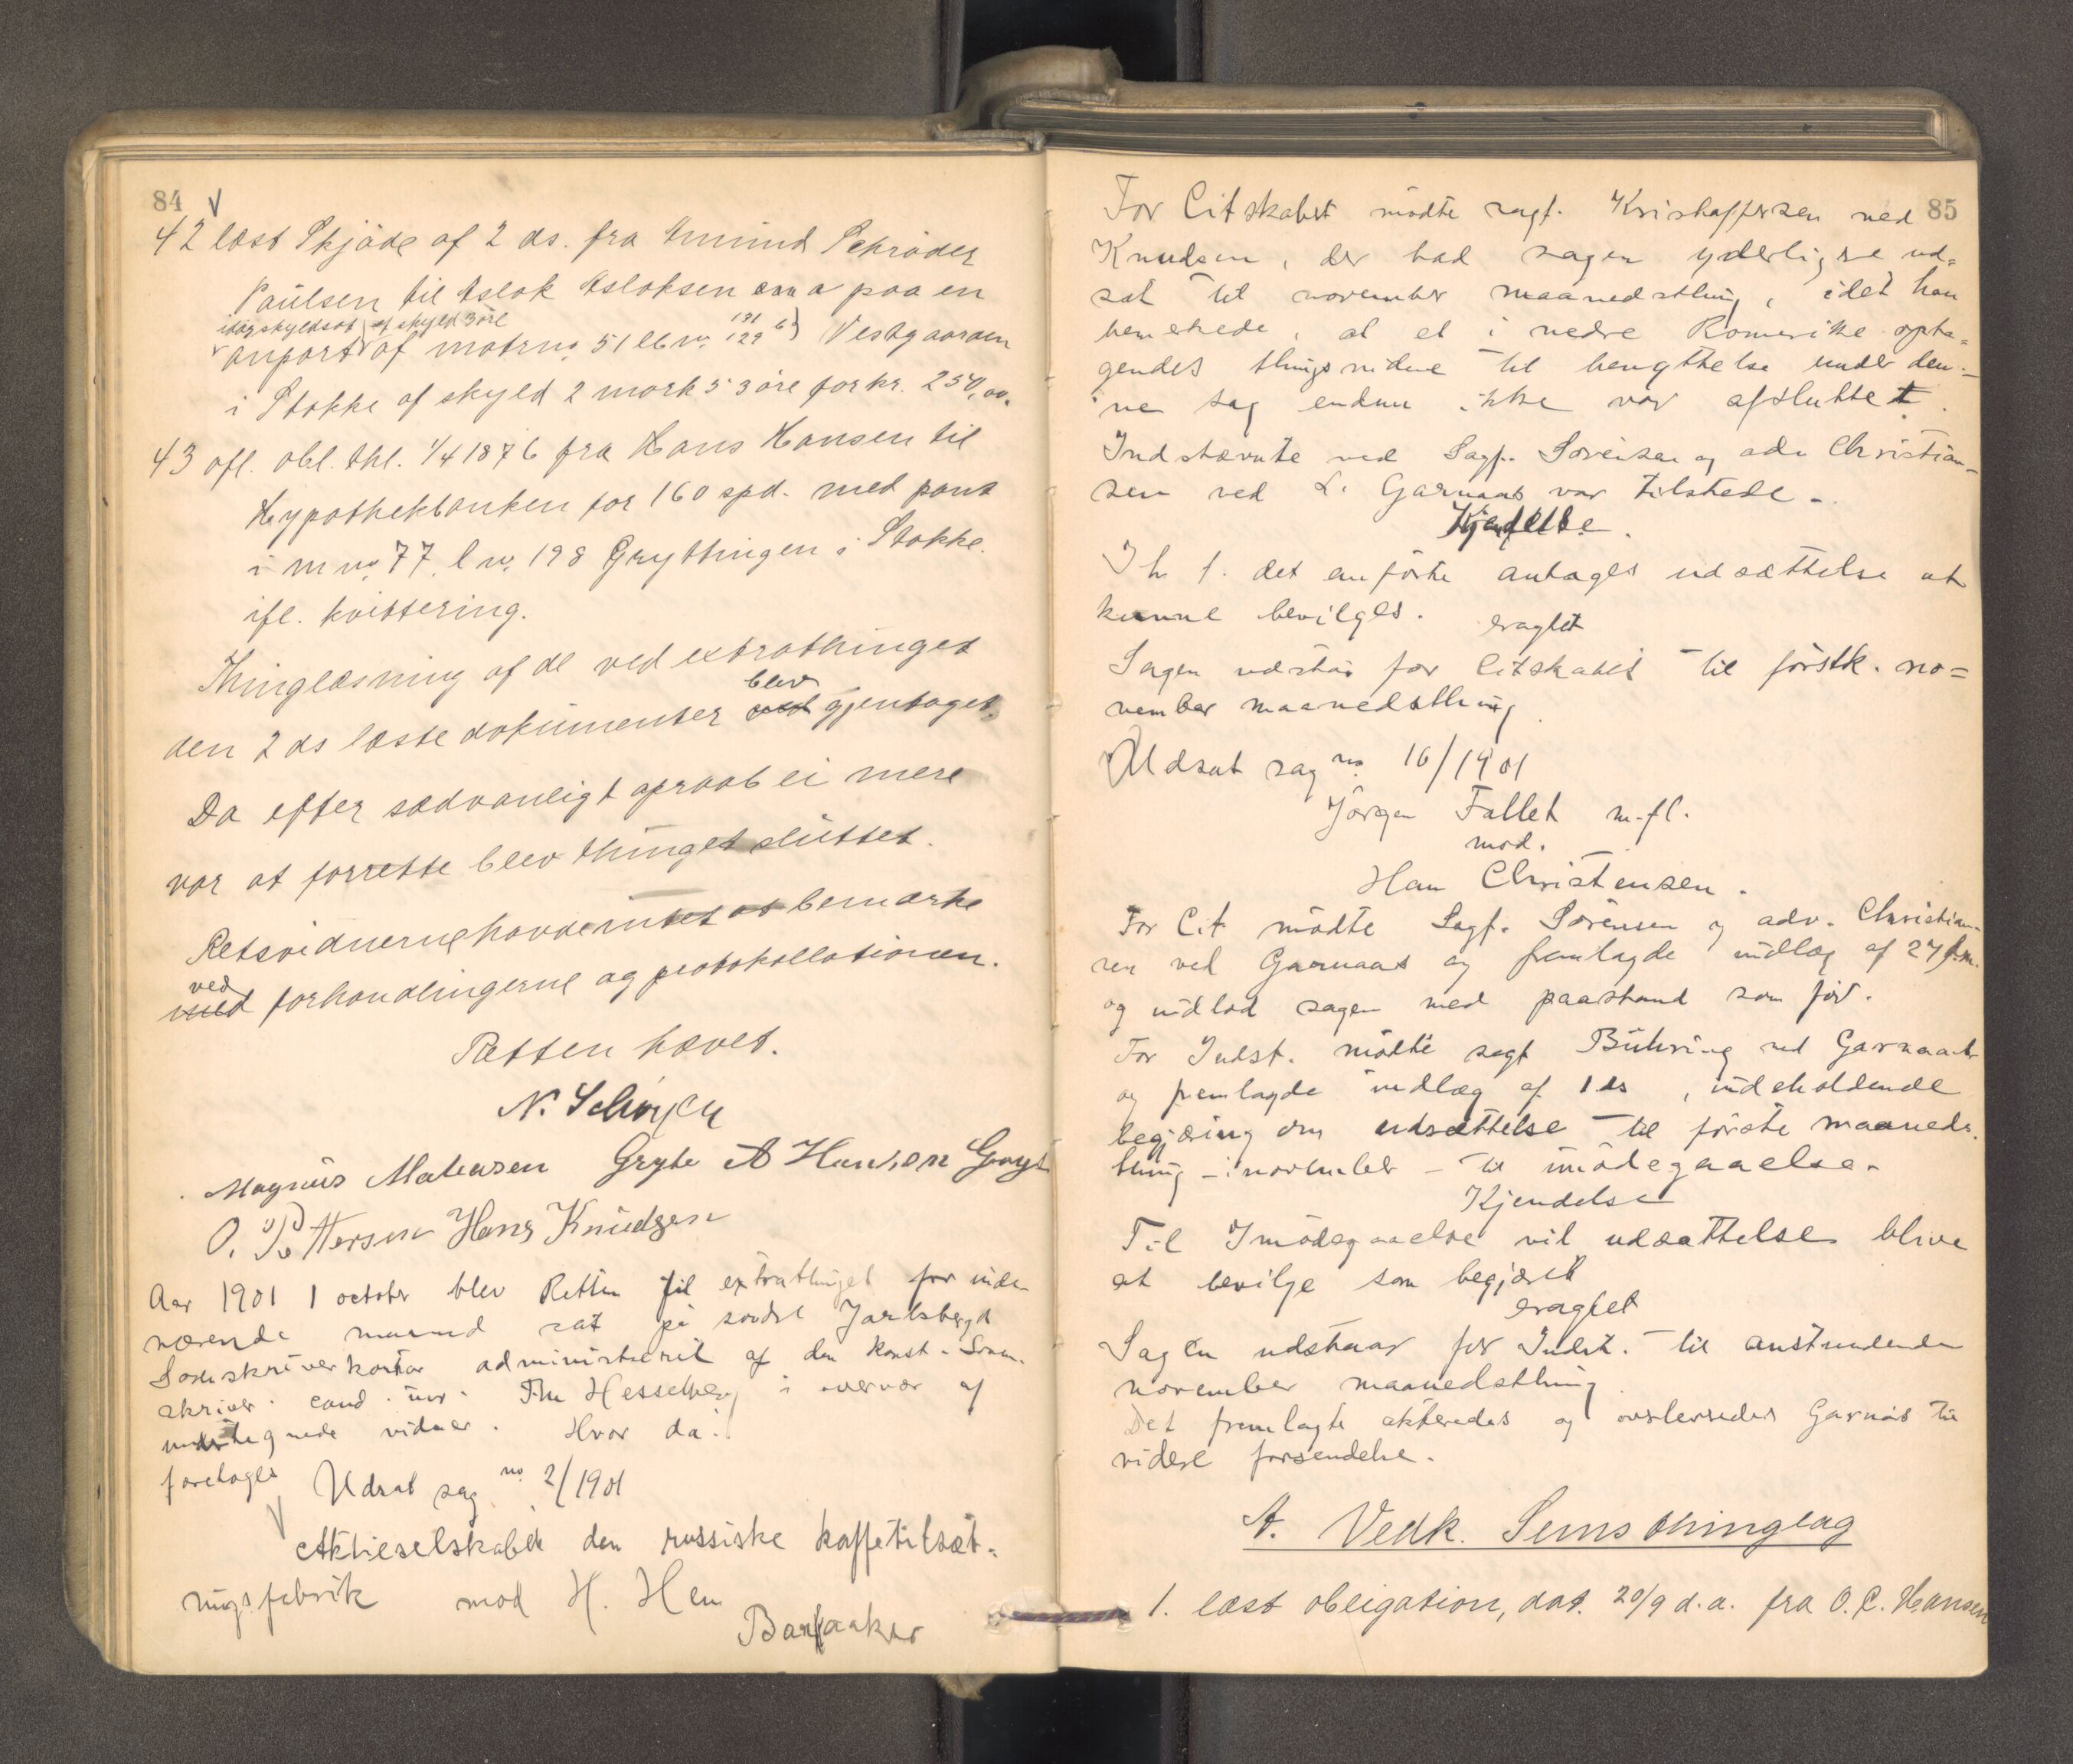 84
42 læst Skjøde af 2 ds. fra Amund Schrøder
Paulsen til Aslak Aslaksen paa en
idag skyldsat af skyld 3 øre
anpart af matrno 51 lbno 129 Vestgaarden
i Stokke af skyld 2 mark 53 øre for kr. 250,00.
43 afl. obl. thl. 1/4 1876 fra Hans Hansen til
Hypothekbanken for 160 spd. med pant
i m no 77 l no 198 Grythingen i Stokke
ifl. kvittering.
Thinglæsning af de ved extrathinget
blev
den 2 ds læste dokumenter gjentaget.
Da efter sædvanligt opraab ei mere
var at forrette blev thinget sluttet.
Retsvidnerne havde intet at bemærke
ved
med forhandlingerne og protokollationen.
Retten hævet.
N. Schøyen
Magnus Mathisen Gryte A Hansen
O. Pettersen Hans Knudsen
Aar 1901 1 october blev Retten til extrathinget for inde-
værende maaned sat på søndre Jarlsbergs
Sorenskriverkontor administreret af den konst. Soren-
skriver cand. jur. Thv Hesselberg i overvær af
undertegnede vidner. Hvor da:
foretoges Udsat sag no 2/1901
Aktieselskabet den russiske kaffetilsæt-
ningsfabrik mod H. Hem
Barkaaker
85
For Citskabet mødte sagf. Kristoffersen ved
Knudsen, der bad sagen yderligere ud-
sat til november maanedsthing, idet han
bemerkede, at et i nedre Romerike opta-
gendes thingsvidne til benyttelse under den-
ne sag endnu ikke var afsluttet.
Indstævnte ved Sagf. Sørensen og adv Christian-
sen ved L. Garnaas var tilstede.
Kjendelse.
I h t. det anførte antages udsættelse at
kunne bevilges.
eragtet
Sagen udstår for Citskabet til førstk. no-
vember maanedsthing.
Udsat sag no 16/1901
Jørgen Fallet m.fl.
mod.
Han Christensen.
For Cit mødte Sagf. Sørensen og adv. Christian-
sen ved Garnaas og fremlagde indlæg af 27 f.m.
og indlod sagen med paastand som før.
For Indst. mødte sagf Bühring ved Garnaas
og fremlagde indlæg af 1 ds, indeholdende
begjæring om udsættelse til første maaneds-
thing – i november – til imødegaaelse.
Kjendelse
Til Imødegaaelse vil udsættelse blive
at bevilge som begjæret
eragtet
Sagen udstaar for Indst. til anstundende
november maanedsthing.
Det fremlagte akteredes og overleveredes Garnås til
videre forsendelse.
A. Vedk. Sems thinglag
1. læst obligation, dat. 20/9 d.a. fra O. C. Hansen